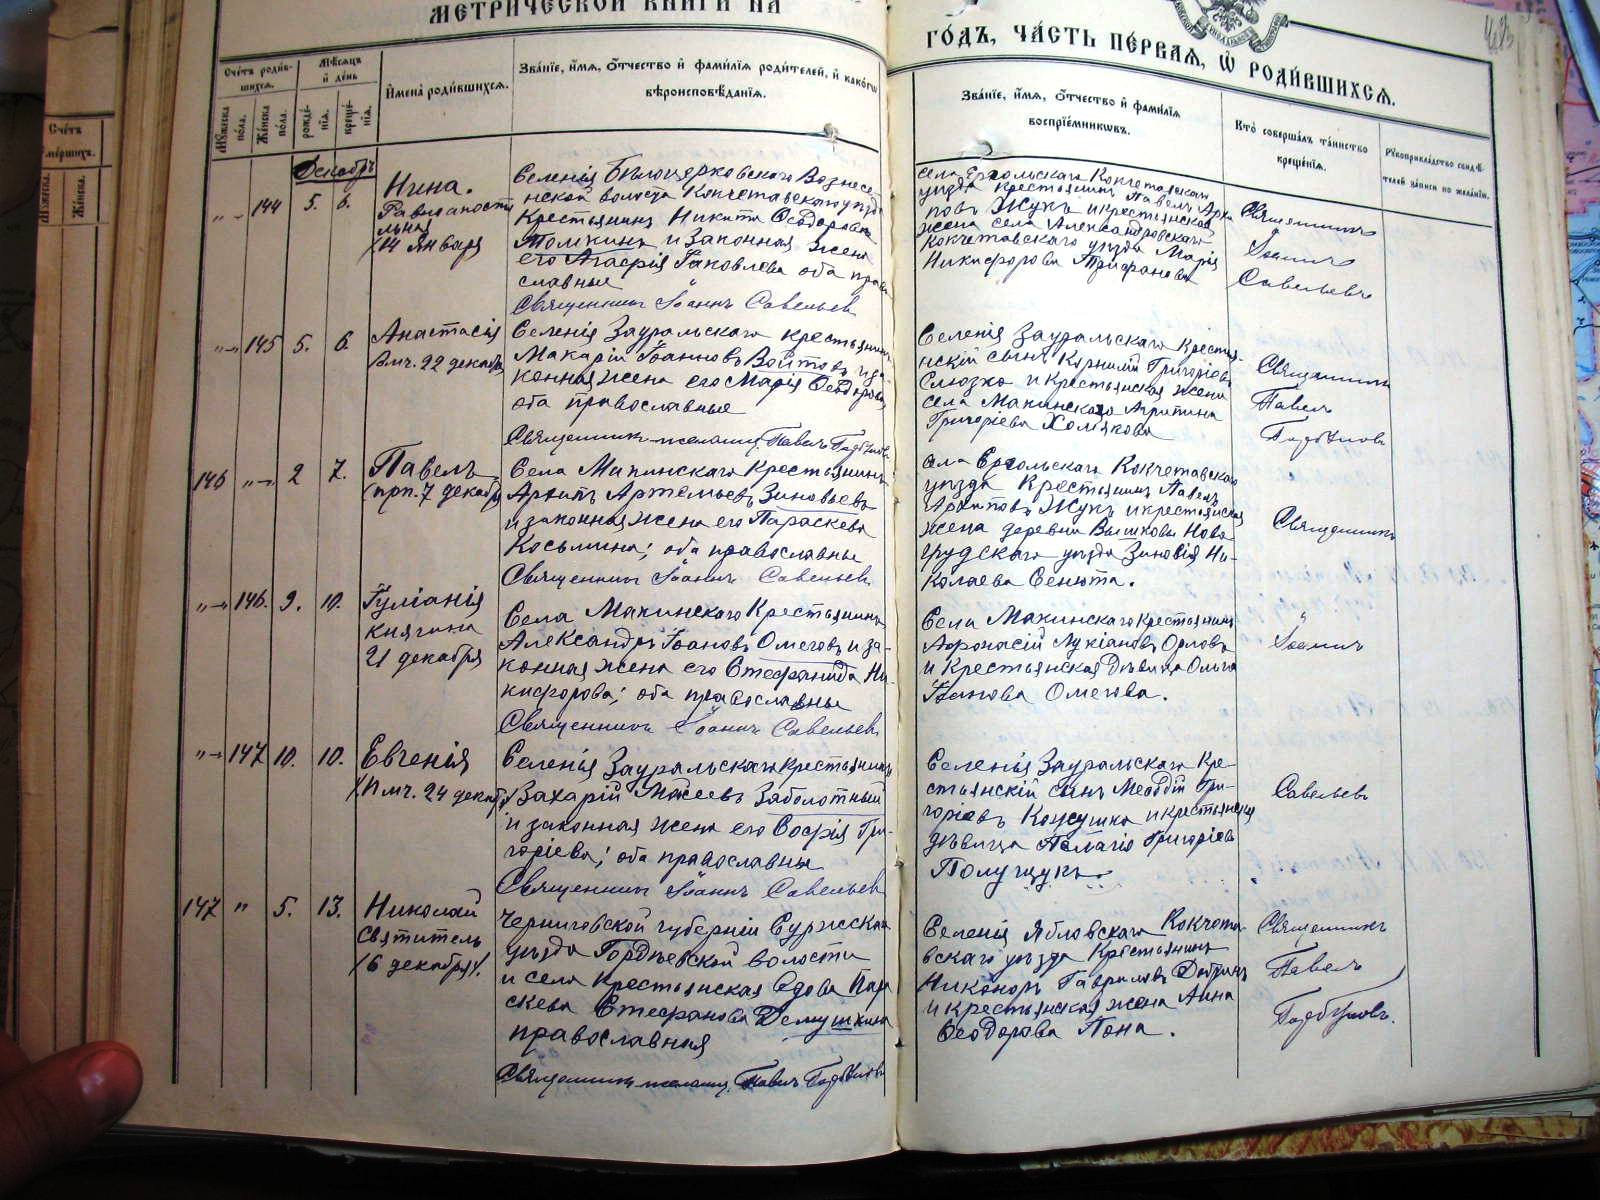 МЕТРИЧЕСКОЙ КНИГИ НА
ГО́ДЪ, ЧА́СТЬ ПЕ́РВАЯ, Ѡ҆ РОДИ́ВШИХСЯ.
Сче́тъ роди́в-
шихся.
Мѣ́сяцъ
и҆ де́нь
Мꙋ́жеска
по́ла.
Же́нска
по́ла.
рожде́-
нїя.
креще́-
нїя.
И҆мена̀ роди́вшихся.
Зва́нїе, и҆́мя, ѻ҆́тчество и҆ фами́лїя роди́телей, и҆ како́гѡ
вѣроисповѣ́данїя.
Зва́нїе, и҆́мя, ѻ҆́тчество и҆ фами́лїя
воспрїе́мникѡвъ.
Кто̀ соверша́лъ та́инство
креще́нїя.
Рꙋкоприкла́дство свидѣ́-
телей за́писи по жела́нїю.
Сче́тъ
ме́ршихъ.
Мꙋ́жеска.
Же́нска.
Декабрь
144 5. 6.
Нина.
Равноапосто
льная
/14 Января
Селенія Бѣлоцерковскаго Вознесе
нской волости Кокчетавскаго уѣзда
Крестьянинъ Никита Ѳеодоровъ
Томкинъ и Законная Жена
его Агафія Іаковлева оба право
славные
Священникъ Іоаннъ Савельевъ
села Ерсольскаго Кокчетавскаго
уѣзда Крестьянинъ Павелъ Архи
повъ Жукъ и крестьянская
жена села Александровскаго
Кокчетавскаго уѣзда Марія
Никифорова Трифанова
Священникъ
Іоаннъ
Савельевъ
145 5. 6.
Анастасія
Вмч. 22 декабря
Селенія Зауральскаго крестьянинъ
Макарій Іоанновъ Войтовъ и за
конная жена его Марія Ѳеодорова
оба православные
Священникъ Павелъ
Селенія Зауральскаго Крестья-
нскій сынъ Корнилій Григоріевъ
Слюзко и крестьянская жена
села Макинскаго Агрипина
Григоріева Холякова
Священникъ
Павелъ
146 2 7.
Павелъ
(прп. 7 декабря
Села Макинскаго Крестьянинъ
Архипъ Артемьевъ Зиновьевъ
и законная жена его Параскева
Косьмина; оба православные
Священникъ Іоаннъ Савельевъ
села Ерсольскаго Кокчетавскаго
уѣзда Крестьянинъ Павелъ
Архиповъ Жукъ и крестьянская
жена деревни Вышковы Ново
грудскаго уѣзда Зиновія Ни-
колаева Сенюта.
Священникъ
146. 9. 10.
Іуліанія
княгиня
21 декабря
Села Макинскаго Крестьянинъ
Александръ Іоановъ Омеговъ и за-
конная жена его Стефанида Ни-
кифорова; оба православные
Священникъ Іоаннъ Савельевъ
Села Макинскаго Крестьянинъ
Афонасій Лукіановъ Орловъ
и Крестьянская Дѣвица Ольга
Іоанова Омегова.
Іоаннъ
147 10. 10.
Евгенія
/Пмч. 24 декабря/
Селенія Зауральскаго крестьянинъ
Захарій Моѵсеевъ Заболотный
и законная жена его Софія Гри-
горіева; оба православные
Священникъ Іоаннъ Савельевъ
Селенія Зауральскаго Кре-
стьянскій сынъ Меѳодій Гри-
горіевъ Кокушка и крестьянская
дѣвица Пелагія Григоріева
Полущукъ.
Савельевъ
147 " 5. 13.
Николай
Святитель
/6 декабря/.
Черниговской губерніи Суражскаго
уѣзда Гордѣевской волости
и села Крестьянская Вдова Пара
скева Стефанова Демушкина
православная
Священникъ Павелъ
Селенія Ябловскаго Кокчета-
вскаго уѣзда Крестьянинъ
Никоноръ Гавриловъ Добринъ
и Крестьянская жена Анна
Ѳеодорова Пона.
Священникъ
Павелъ